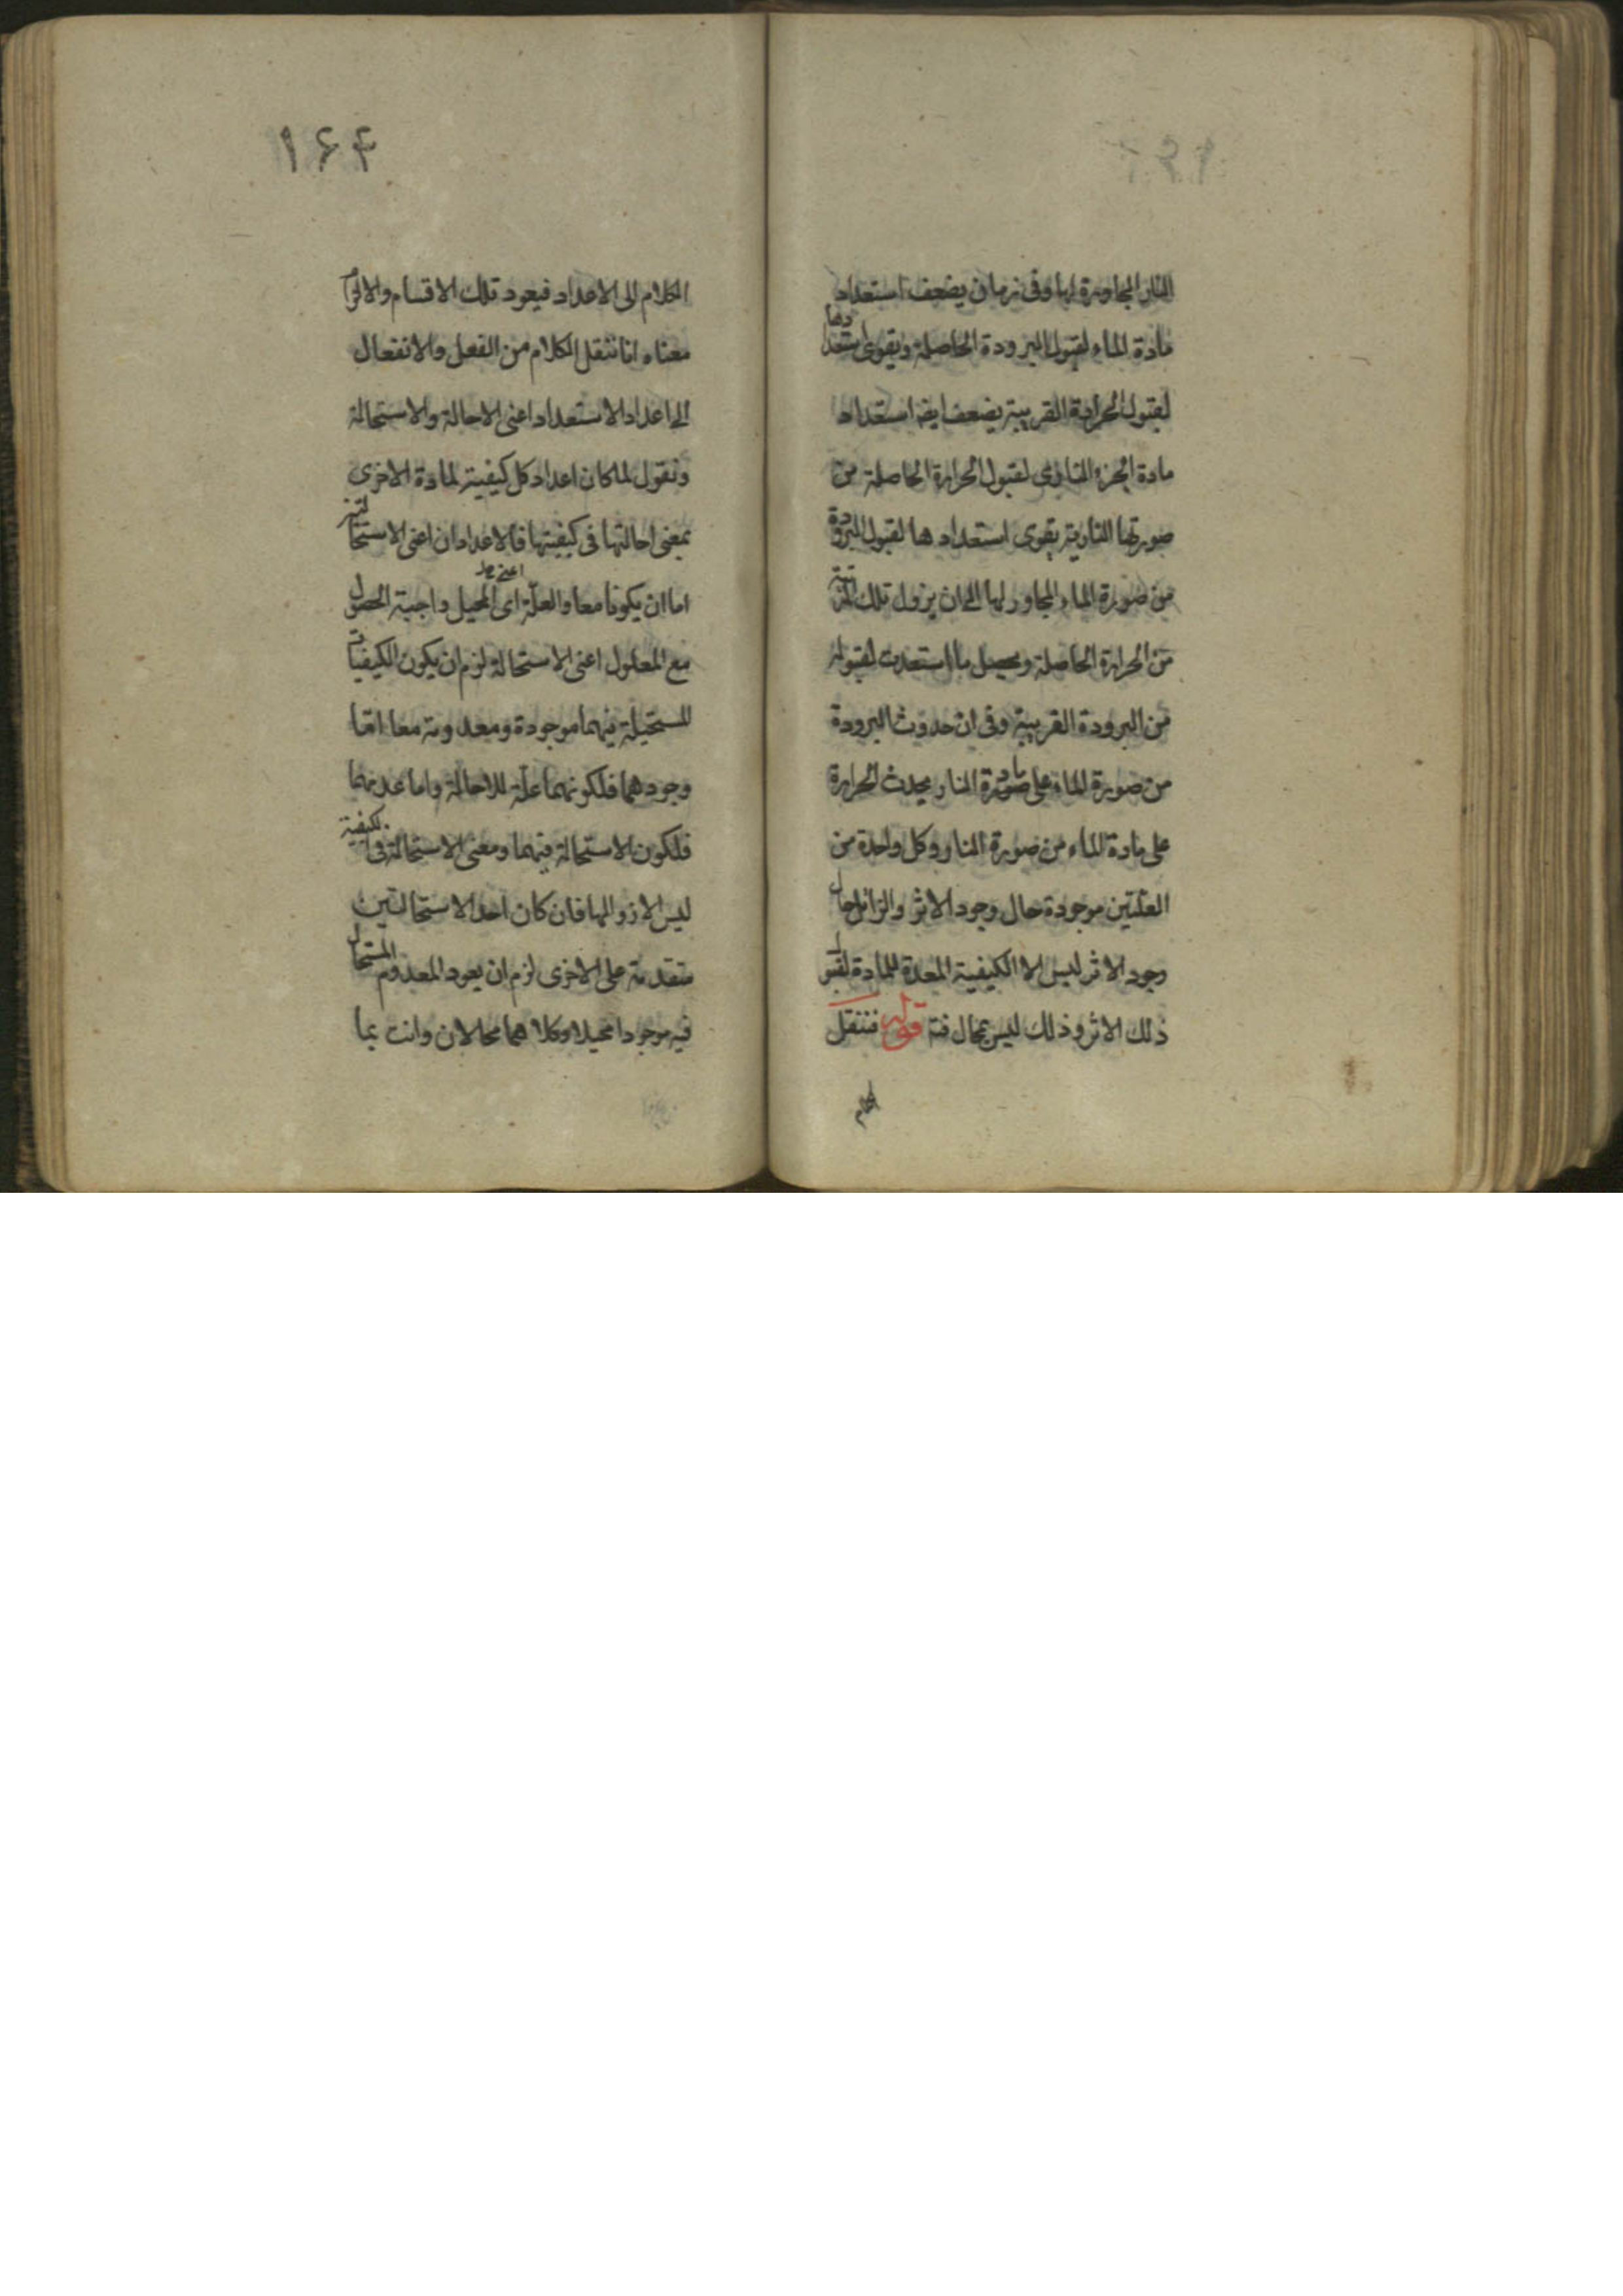 النار المجاورة لها وفى زمان يضعف استعداد
مادة الماء لقبول البرودة الحاصلة ويقوى استعدادها
لقبول الحرارة القريبة يضعف ايضه استعداد
مادة الجزء النارى لقبول الحرارة الحاصلة من
صورتها النارية يقوى استعدادها لقبول البرودة
من صورة الماء المجاور لها الى ان يزول تلك
من الحرارة الحاصلة ويحصل ما استعدت لقبوله
من البرودة القريبة وفى ان حدوث البرودة
من صورة الماء على مادة صورة النار يحدث الحرارة
على مادة الماء من صورة النار وكل واحدة من
العلتين موجودة حال وجود الاثر والزائل حال
وجود الاثر ليس الا الكيفية المعدة للمادة لقبول
ذلك الاثر وذلك ليس بمحال فتـه قوله فننقل
الكلام
١۶۴
الكلام الى الاعداد فيعود تلك الاقسام والالزام
معناه انا ننقل الكلام من الفعل والانفعال
الى اعداد الاستعداد اعنى الاحالة والاستحالة
ونقول لما كان اعداد كل كيفية لمادة الاخرى
بمعنى احالتها فى كيفيتها فالاعدادان اعنى الاستحالتين
اما ان يكونا معا والعلة اى المحيل واجبة الحصول
مع المعلول اعنى الاستحالة لزم ان يكون الكيفيات
المستحيلة فيهما موجودة ومعدومة معا اما
وجودهما فلكونهما علة للاحالة واما عدمهما
فلكون الاستحالة فيهما ومعنى الاستحالة فى الكيفية
ليس الا زوالها فان كان احد الاستحالتين
متقدمة على الاخرى لزم ان يعود المعدوم المستحال
فيه موجودا محيلا وكلاهما محالان وانت بما